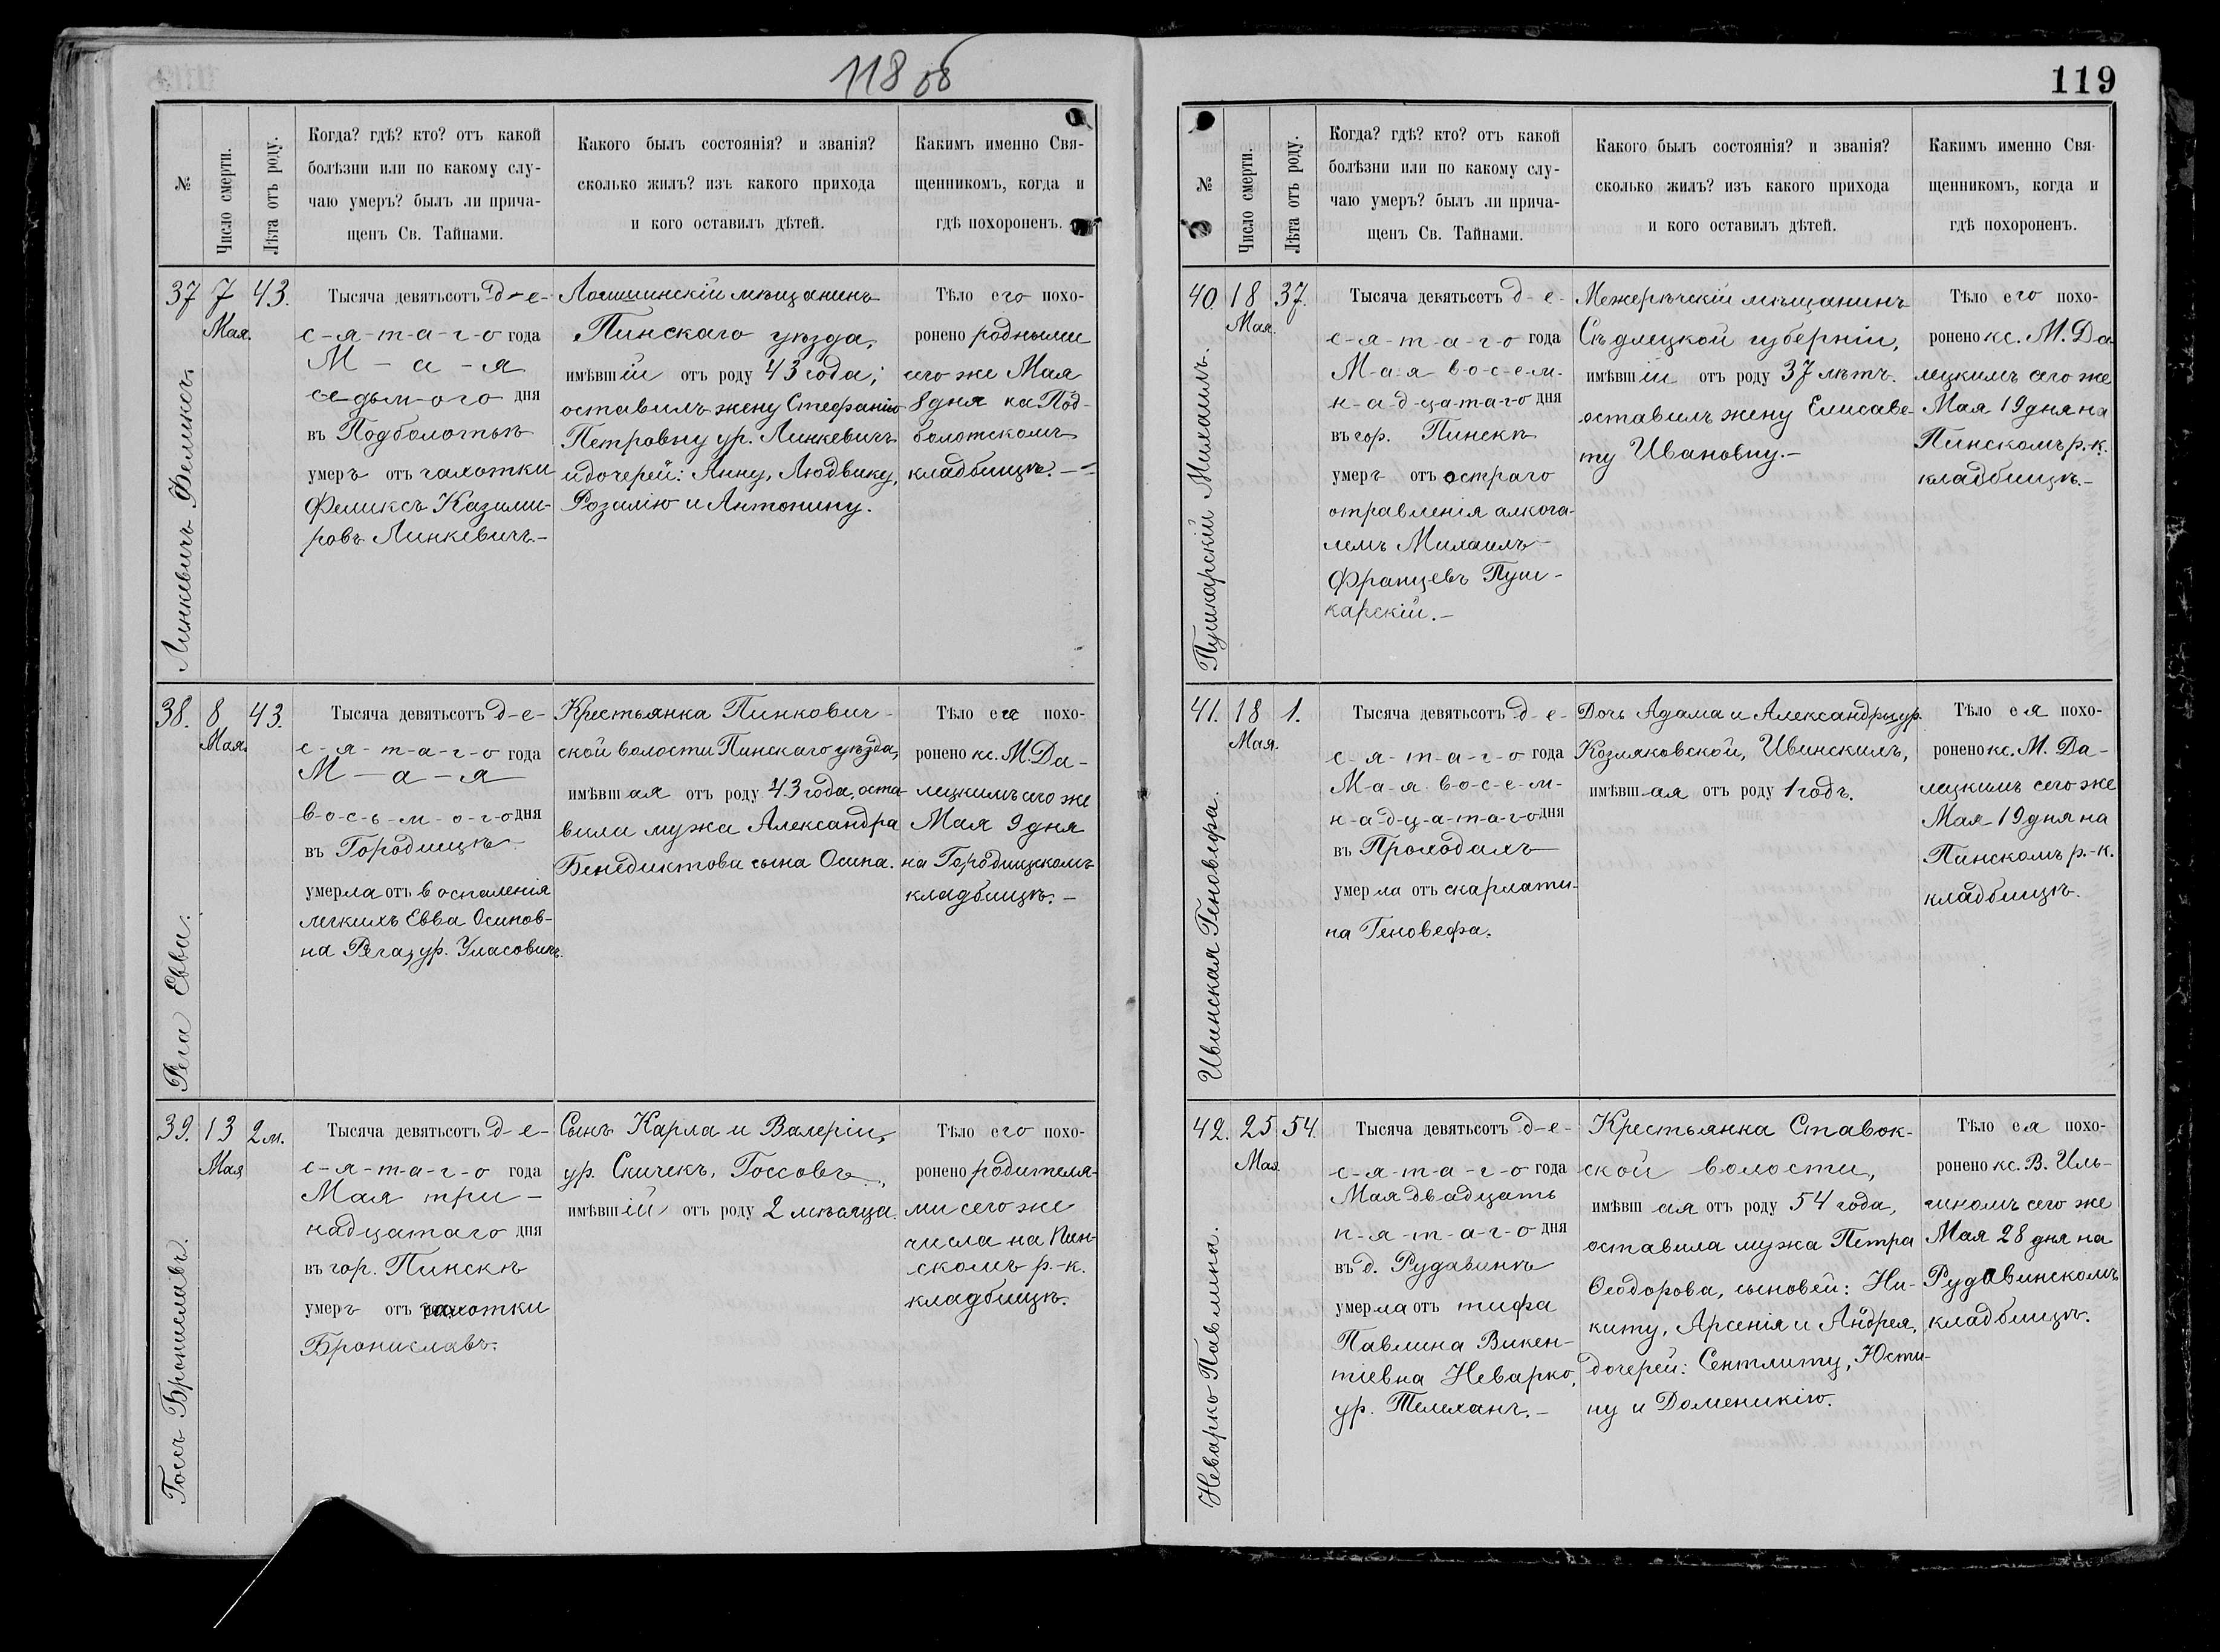 118 об
№
Число смерти.
Лѣта отъ роду.
Когда? гдѣ? кто? отъ какой
болѣзни или по какому слу-
чаю умеръ? былъ ли прича-
щенъ Св. Тайнами.
Какого былъ состоянія? и званія?
сколько жилъ? изъ какого прихода
и кого оставилъ дѣтей.
Какимъ именно Свя-
щенникомъ, когда и
гдѣ похороненъ.
37
Линкевичъ Феликсъ.
7
Мая.
43.
Тысяча девятьсотъ д-е-
с-я-т-а-г-о года
М-а-я
седьмого дня
въ Подболотьѣ
умеръ отъ чахотки
Феликсъ Казими-
ровъ Линкевичъ.-
Логишинскій мѣщанинъ
Пинскаго уѣзда,
имѣвшій отъ роду 43 года;
оставилъ жену Стефанію
Петровну ур. Линкевичъ
и дочерей: Анну, Людвику,
Розалію и Антонину.
Тѣло его похо-
ронено родными
сего же Мая
8 дня на Под-
болотскомъ
кладбищѣ.-
38.
Рега Евва.
8
Мая.
43.
Тысяча девятьсотъ д-е-
с-я-т-а-г-о года
М-а-я
в-о-с-ь-м-о-г-о дня
въ Городищѣ
умерла отъ воспаленія
легкихъ Евва Осипов-
на Рега, ур. Уласовичъ.
Крестьянка Пинкович-
ской волости Пинскаго уѣзда,
имѣвшая отъ роду 43 года, оста-
вила мужа Александра
Бенедиктова сына Осипа.
Тѣло ея похо-
ронено кс. М. Да-
лецкимъ сего же
Мая 9 дня
на Городищскомъ
кладбищѣ.-
39.
Госъ Брониславъ.
13
Мая
2 м.
Тысяча девятьсотъ д-е-
с-я-т-а-г-о года
Мая три-
надцатаго дня
въ гор. Пинскѣ
умеръ отъ чахотки
Брониславъ.
Сынъ Карла и Валеріи,
ур. Скичекъ, Госсовъ,
имѣвшій отъ роду 2 мѣсяца.
Тѣло его похо-
ронено родителя-
ми сего же
числа на Пин-
скомъ р.-к.
кладбищѣ.
119
№
Число смерти.
Лѣта отъ роду.
Когда? гдѣ? кто? отъ какой
болѣзни или по какому слу-
чаю умеръ? былъ ли прича-
щенъ Св. Тайнами.
Какого былъ состоянія? и званія?
сколько жилъ? изъ какого прихода
и кого оставилъ дѣтей.
Какимъ именно Свя-
щенникомъ, когда и
гдѣ похороненъ.
40.
Пушкарскій Михаилъ.
18
Мая.
37.
Тысяча девятьсотъ д-е-
с-я-т-а-г-о года
М-а-я в-о-с-е-м-
н-а-д-ц-а-т-а-г-о дня
въ гор. Пинскѣ
умеръ отъ остраго
отравленія алкога-
лемъ Михаилъ
Францевъ Пуш-
карскій.-
Межерѣчскій мѣщанинъ
Сѣдлецкой губерніи,
имѣвшій отъ роду 37 лѣтъ.
оставилъ жену Елисаве-
ту Ивановну.-
Тѣло его похо-
ронено кс. М. Да-
лецкимъ сего же
Мая 19 дня на
Пинскомъ р.-к.
кладбищѣ.-
41.
Ивинская Геновефа.
18
Мая.
1.
Тысяча девятьсотъ д-е-
с-я-т-а-г-о года
М-а-я в-о-с-е-м-
н-а-д-ц-а-т-а-г-о дня
въ Проходахъ
умерла отъ скарлати-
на Геновефа.
Дочь Адама и Александры ур.
Козляковской, Ивинскихъ,
имѣвшая отъ роду 1 годъ.
Тѣло ея похо-
ронено кс. М. Да-
лецкимъ сего же
Мая 19 дня на
Пинскомъ р.-к.
кладбищѣ.
42.
Неварко Павлина.
25
Мая
54.
Тысяча девятьсотъ д-е-
с-я-т-а-г-о года
Мая двадцать
п-я-т-а-г-о дня
въ д. Рудавинѣ
умерла отъ тифа
Павлина Викен-
тіевна Неварко,
ур. Телеханъ.-
Крестьянка Ставок-
ской волости,
имѣвшая отъ роду 54 года,
оставила мужа Петра
Ѳеодорова, сыновей: Ни-
киту, Арсенія и Андрея,
дочерей: Сентлиту, Юсти-
ну и Доменикію.
Тѣло ея похо-
ронено кс. В. Иль-
гиномъ сего же
Мая 28 дня на
Рудавинскомъ
кладбищѣ.